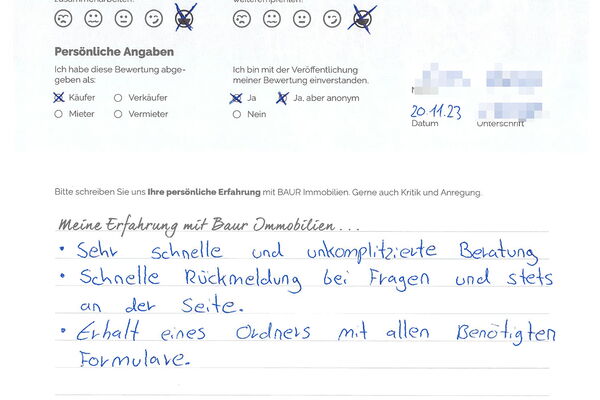 Persönliche Angaben
Ich habe diese Bewertung abge-
geben als:
Käufer
Verkäufer
Mieter
Vermieter
Ich bin mit der Veröffentlichung
meiner Bewertung einverstanden.
Ja
Ja, aber anonym
Nein
20.11.23
Datum
Unterschrift
Bitte schreiben Sie uns Ihre persönliche Erfahrung mit BAUR Immobilien. Gerne auch Kritik und Anregung.
Meine Erfahrung mit Baur Immobilien...
• Sehr schnelle und unkomplitzierte Beratung
• Schnelle Rückmeldung bei Fragen und stets
an der Seite.
• Erhalt eines Ordners mit allen Benötigten
Formulare.